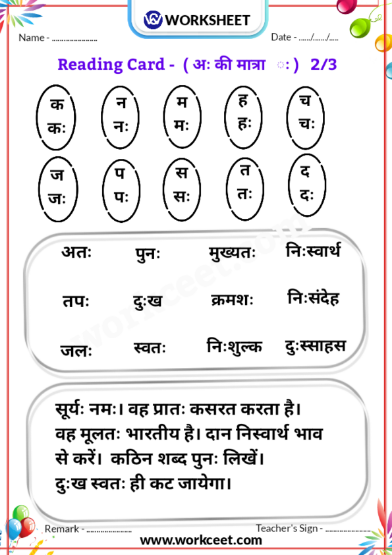 WORKSHEET
Name - ........................ Date - ....../....../.....
Reading Card - ( अः की मात्रा ः ) 2/3
क न म ह च
कः नः मः हः चः
ज प स त द
जः पः सः तः दः
अतः पुनः मुख्यतः निःस्वार्थ
तपः दुःख क्रमशः निःसंदेह
जलः स्वतः निःशुल्क दुःस्साहस
सूर्यः नमः। वह प्रातः कसरत करता है।
वह मूलतः भारतीय है। दान निस्वार्थ भाव
से करें। कठिन शब्द पुनः लिखें।
दुःख स्वतः ही कट जायेगा।
Remark - ........................ Teacher's Sign - ........................
www.workceet.com